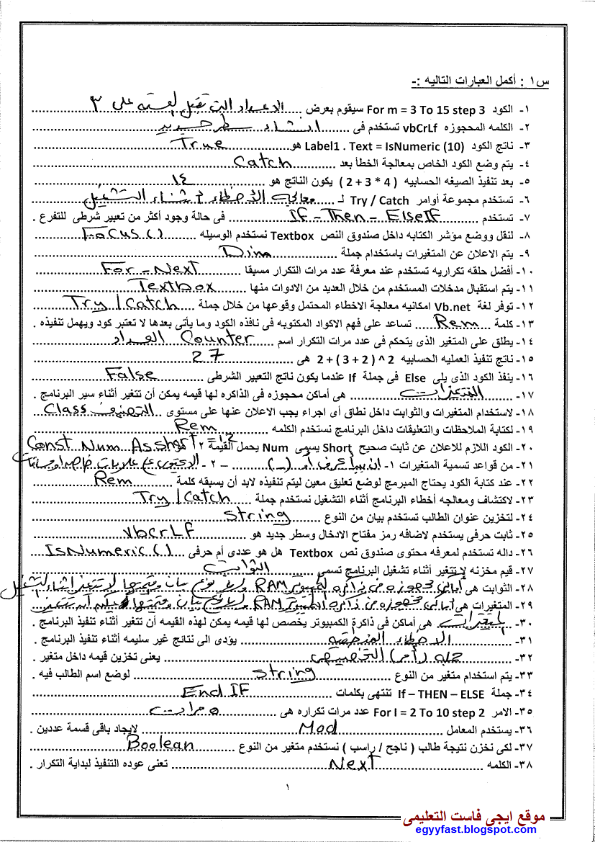 س١ : أكمل العبارات التالية :-
١- الكود For m = 3 To 15 step 3 سيقوم بعرض الاعداد التى تقبل القسمه على ٣
٢- الكلمه المحجوزه vbCrLf تستخدم فى انشاء سطر جديد
٣- ناتج الكود Label1 . Text = IsNumeric (10) هو True
٤- يتم وضع الكود الخاص بمعالجة الخطأ بعد Catch
٥- بعد تنفيذ الصيغه الحسابيه ( 4 * 3 + 2 ) يكون الناتج هو ١٤
٦- تستخدم مجموعة أوامر Try / Catch لـ معالجة الاخطاء اثناء التشغيل
٧- تستخدم If - Then - ElseIf فى حالة وجود أكثر من تعبير شرطى للتفرع .
٨- لنقل ووضع مؤشر الكتابه داخل صندوق النص Textbox نستخدم الوسيله Focus ()
٩- يتم الاعلان عن المتغيرات باستخدام جملة Dim
١٠- أفضل حلقه تكراريه تستخدم عند معرفة عدد مرات التكرار مسبقا For - Next
١١- يتم استقبال مدخلات المستخدم من خلال العديد من الادوات منها Textbox
١٢- توفر لغة Vb.net امكانيه معالجة الاخطاء المحتمل وقوعها من خلال جملة Try / Catch
١٣- كلمة Rem تساعد على فهم الاكواد المكتوبه فى نافذه الكود وما يأتى بعدها لا تعتبر كود ويهمل تنفيذه .
١٤- يطلق على المتغير الذى يتحكم فى عدد مرات التكرار اسم Counter العداد
١٥- ناتج تنفيذ العمليه الحسابيه 2 ^ ( 2 + 3 ) + 2 هى 27
١٦- ينفذ الكود الذى يلى Else فى جملة If عندما يكون ناتج التعبير الشرطى False
١٧- المتغيرات هى أماكن محجوزه فى الذاكره لها قيمه يمكن أن تتغير أثناء سير البرنامج .
١٨- لاستخدام المتغيرات والثوابت داخل نطاق أى اجراء يجب الاعلان عنها على مستوى التصنيف Class
١٩- لكتابة الملاحظات والتعليقات داخل البرنامج نستخدم الكلمه Rem
٢٠- الكود اللازم للاعلان عن ثابت صحيح Short يسمى Num يحمل القيمة ٢ هو Const Num As short = 2
٢١- من قواعد تسمية المتغيرات ١- ان يبدأ بحرف أو ( _ ) – ٢-
٢٢- عند كتابة الكود يحتاج المبرمج لوضع تعليق معين ليتم تنفيذه لابد أن يسبقه كلمة Rem
٢٣- لاكتشاف ومعالجه أخطاء البرنامج أثناء التشغيل نستخدم جملة Try / Catch
٢٤- لتخزين عنوان الطالب تستخدم بيان من النوع String
٢٥- ثابت حرفى يستخدم لاضافه رمز مفتاح الادخال وسطر جديد هو vbcrLf
٢٦- داله تستخدم لمعرفه محتوى صندوق نص Textbox هل هو عددى أم حرفى IsNumeric ( )
٢٧- قيم مخزنه لا تتغير أثناء تشغيل البرنامج تسمى الثوابت
٢٨- الثوابت هى أماكن محجوزه من ذاكره الكمبيوتر RAM ولها نوع بيانات وقيمتها لا تتغير اثناء التشغيل
٢٩- المتغيرات هى أماكن محجوزه من ذاكره الكمبيوتر RAM
٣٠- المتغيرات هى أماكن فى ذاكرة الكمبيوتر يخصص لها قيمه يمكن لهذه القيمه أن تتغير أثناء تنفيذ البرنامج .
٣١- الاخطاء المنطقيه يؤدى الى نتائج غير سليمه أثناء تنفيذ البرنامج .
٣٢- جمله (أمر) التخصيص يعنى تخزين قيمه داخل متغير .
٣٣- يتم استخدام متغير من النوع String لوضع اسم الطالب فيه .
٣٤- جملة If – THEN – ELSE تنتهى بكلمات End IF
٣٥- الامر For I = 2 To 10 step 2 عدد مرات تكراره هى ٥ مرات
٣٦- يستخدم المعامل Mod لايجاد باقى قسمة عددين .
٣٧- لكى نخزن نتيجة طالب ( ناجح / راسب ) نستخدم متغير من النوع Boolean
٣٨- الكلمه Next تعنى عوده التنفيذ لبداية التكرار .
١
موقع ايجى فاست التعليمى
egyyfast.blogspot.com